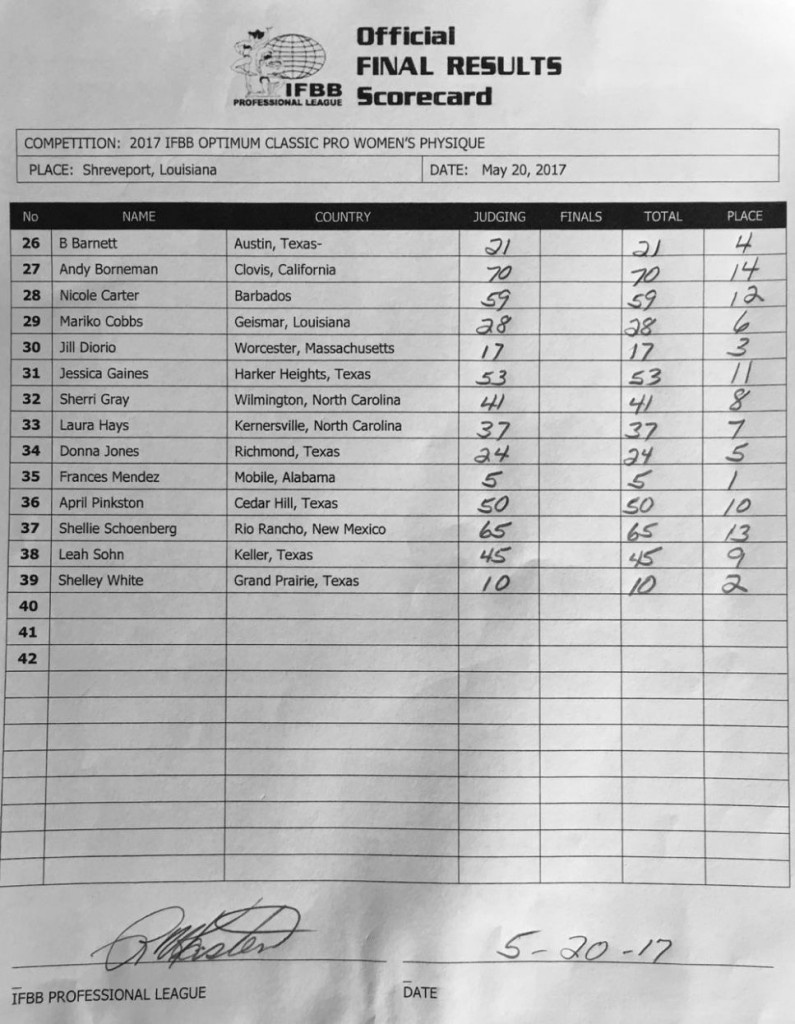 Official
FINAL RESULTS
Scorecard
IFBB
PROFESSIONAL LEAGUE
COMPETITION: 2017 IFBB OPTIMUM CLASSIC PRO WOMEN'S PHYSIQUE
PLACE: Shreveport, Louisiana DATE: May 20, 2017
No NAME COUNTRY JUDGING FINALS TOTAL PLACE
26 B Barnett Austin, Texas- 21 21 4
27 Andy Borneman Clovis, California 70 70 14
28 Nicole Carter Barbados 59 59 12
29 Mariko Cobbs Geismar, Louisiana 28 28 6
30 Jill Diorio Worcester, Massachusetts 17 17 3
31 Jessica Gaines Harker Heights, Texas 53 53 11
32 Sherri Gray Wilmington, North Carolina 41 41 8
33 Laura Hays Kernersville, North Carolina 37 37 7
34 Donna Jones Richmond, Texas 24 24 5
35 Frances Mendez Mobile, Alabama 5 5 1
36 April Pinkston Cedar Hill, Texas 50 50 10
37 Shellie Schoenberg Rio Rancho, New Mexico 65 65 13
38 Leah Sohn Keller, Texas 45 45 9
39 Shelley White Grand Prairie, Texas 10 10 2
40
41
42
5-20-17
IFBB PROFESSIONAL LEAGUE DATE